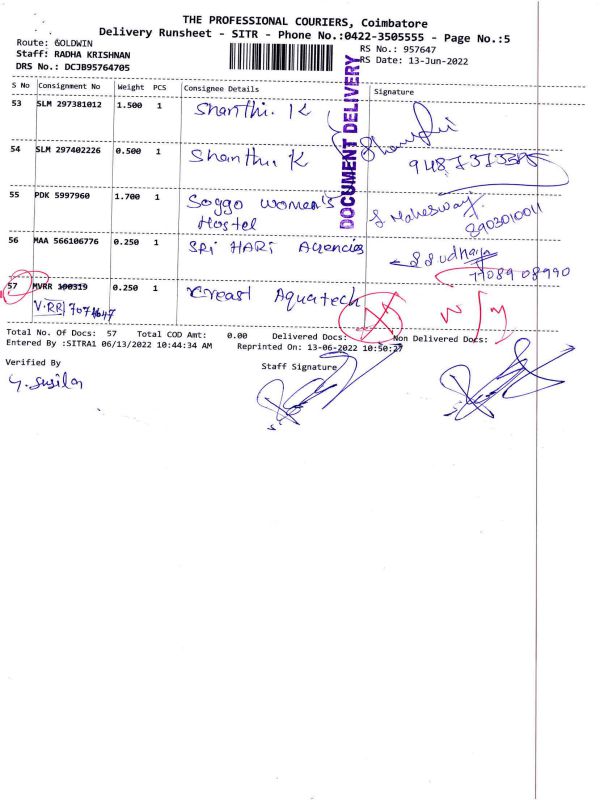 THE PROFESSIONAL COURIERS, Coimbatore
Delivery Runsheet - SITR - Phone No.:0422-3505555 - Page No.:5
Route: GOLDWIN
RS No.: 957647
Staff: RADHA KRISHNAN
RS Date: 13-Jun-2022
DRS No.: DCJB95764705
DOCUMENT DELIVERY
S No Consignment No Weight PCS Consignee Details Signature
53 SLM 297381012 1.500 1 Shanthi. K
54 SLM 297402226 0.500 1 Shanthi. K
55 PDK 5997960 1.700 1 Soggo women's Hostel S. Maheswari
8903010011
56 MAA 566106776 0.250 1 SRI HARI Agencies
7708908990
57 MVRR 100319 0.250 1 Creast Aquatech
V.RR 7071647
Total No. Of Docs: 57 Total COD Amt: 0.00 Delivered Docs: Non Delivered Docs:
Entered By :SITRA1 06/13/2022 10:44:34 AM Reprinted On: 13-06-2022 10:50:27
Verified By
Staff Signature
Y. Susila